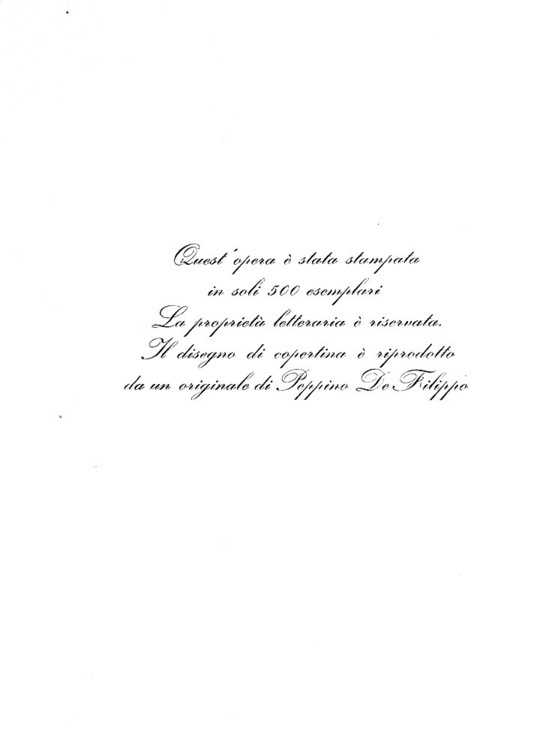 Quest'opera è stata stampata
in soli 500 esemplari
La proprietà letteraria è riservata.
Il disegno di copertina è riprodotto
da un originale di Peppino De Filippo